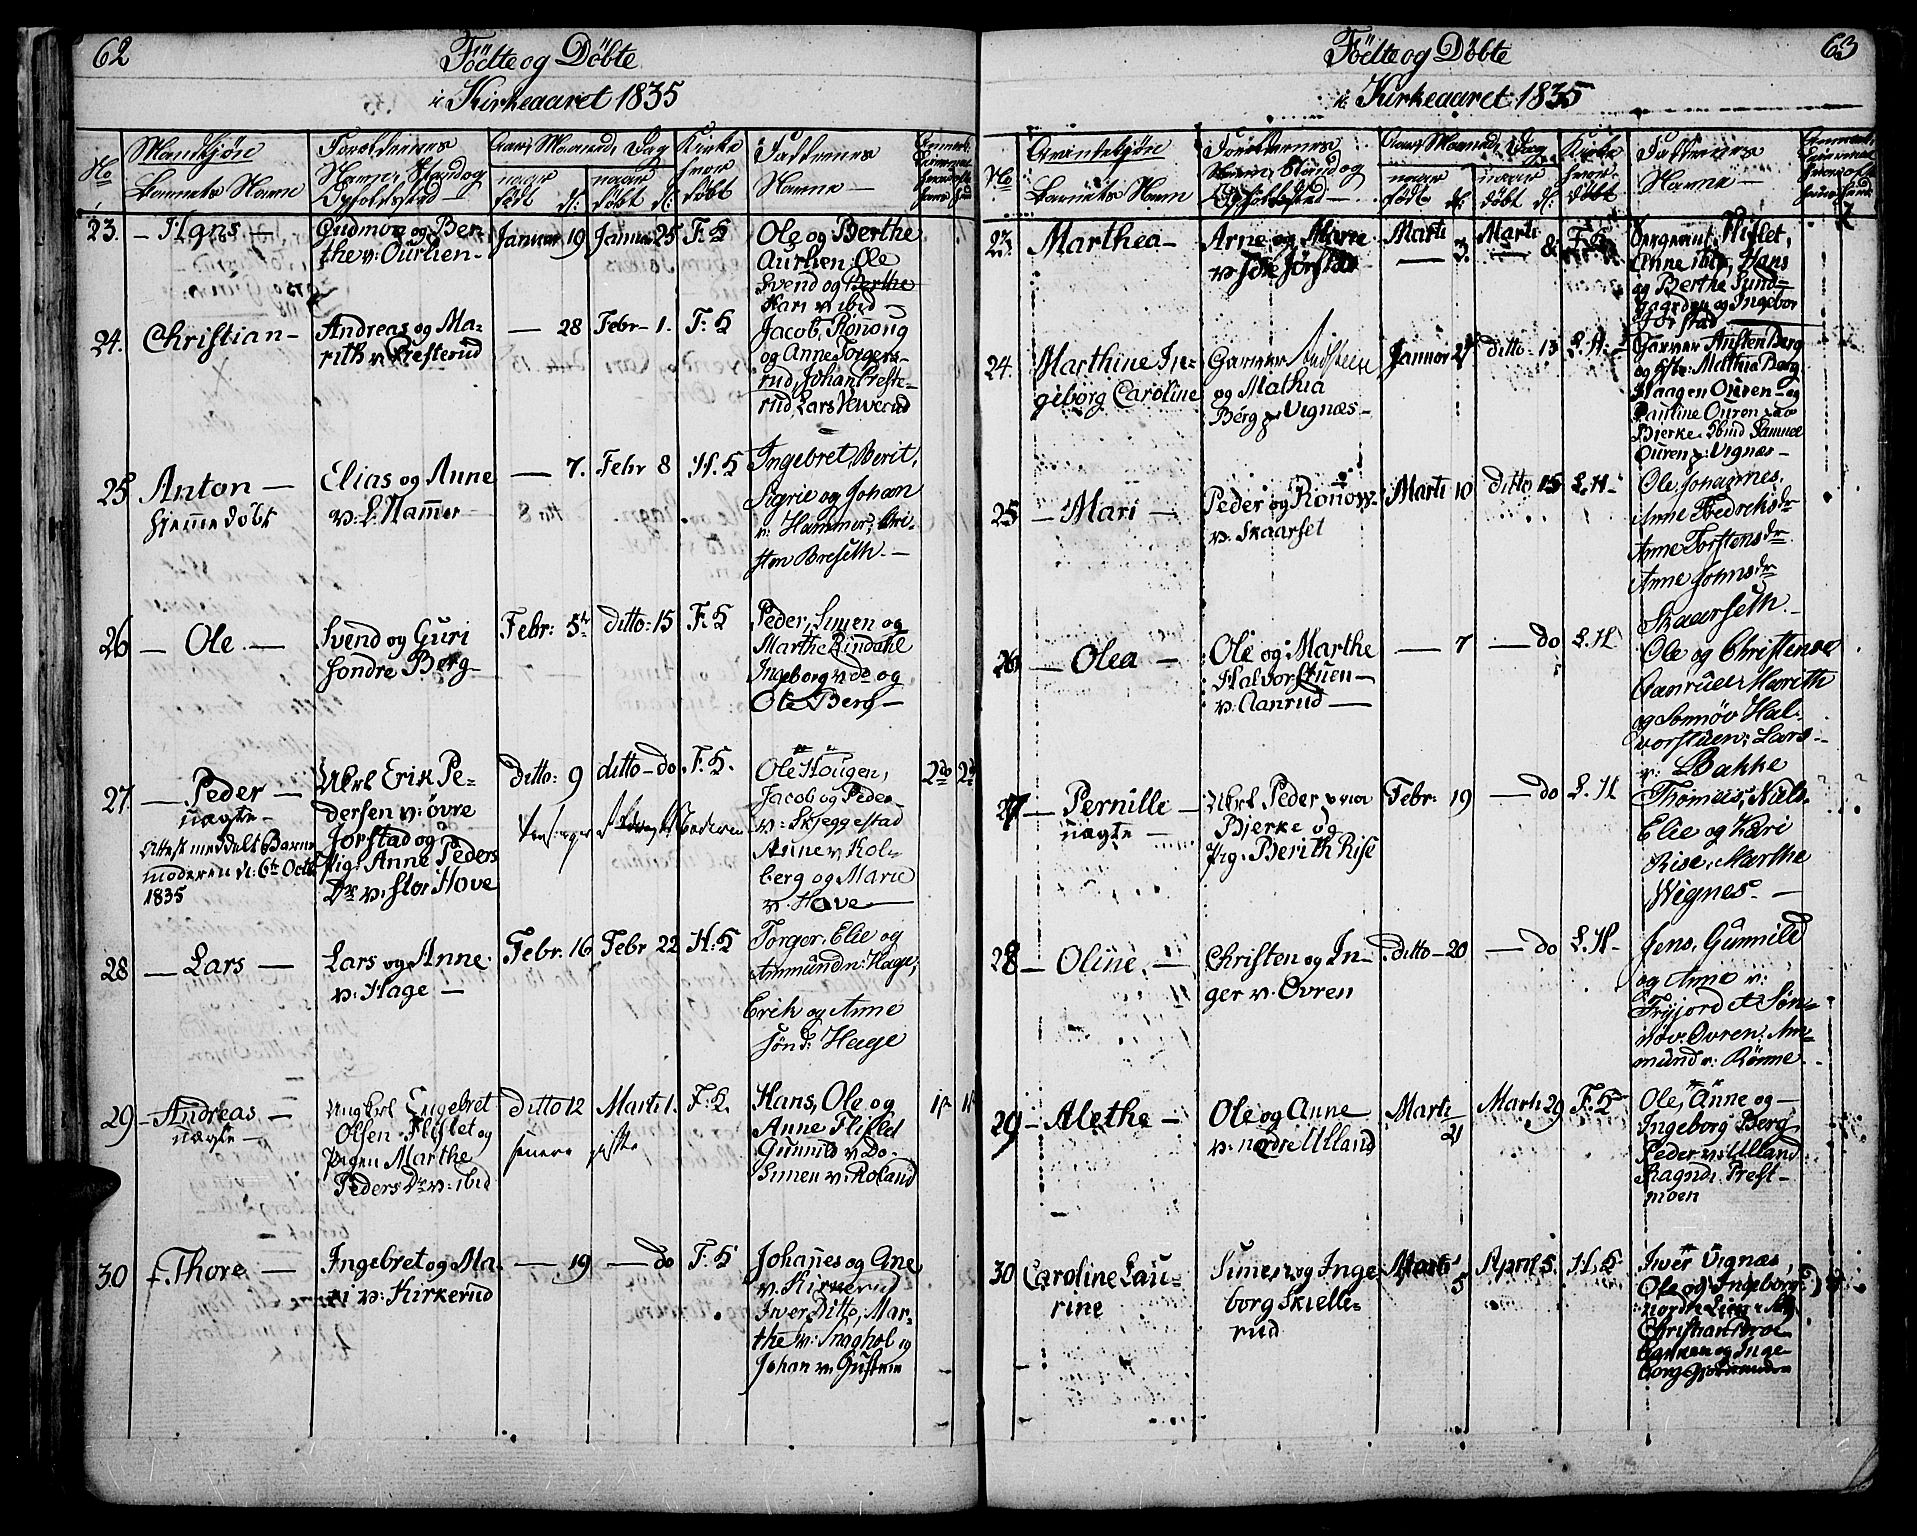 62
Födte og Döbte
i Kirkeaaret 1835
No
Mandkjön
Barnets Navne
Forældrenes
Navne, Stand og
Opholdsted
Aars, Maaneds Dag
naar
födt d:
naar
döbt d:
Kirke
hvor
döbt
Faddernes
Navne —
23.
— Hans —
Gudmon og Ber-
the v: Ourlien-
Januar 19
Januar 25
F: H
Ole og Berthe
Aurlien: Ole
Svend og Berthe
Kari v. ibid —
24.
Christian —
Andreas og Ma-
rith v. Presterud
— 28
Febr — 1.
F: H
Jacob, Rönoug
og Anne Torgers-
rud, Johan Preste-
rud, Lars Veverud
25
Anton —
hjemme döbt
Elias og Anne
v: L. Hammer —
— 7.
Febr 8
H. H
Ingebret, Berit,
Sigrie og Johan
v: Hammer, Kri-
sten Breseth. —
26
— Ole —
Svend og Guri
Söndre Berg-
Febr: 5te
ditto: 15
F. H
Peder, Simen og
Marthe Rindahl
Ingeborg v. do og
Ole Berg —
27.
— Peder —
uægte —
Attest meddelt Barne
moderen d: 6te Octb
1835
Ukrl Erik Pe-
dersen v: övre
Jorstad og
Pig: Anne Peders
Dr v: Stor Hove
Ditto: 9
ditto — do
F. H.
Ole Hougen,
Jacob og Peder
v: Skjeggestad
Anne v. Kol-
berg og Marie
v. Hove —
2do
2d
28
— Lars —
Lars og Anne
v: Hage —
Febr: 16
Febr 22
H: H
Torger, Elie og
Ammund v: Hage,
Erik og Anne
sönd: Hage
29
— Andreas —
uægte —
Ungkrl Engebret
Olsen Flyfet og
Pigen Marthe
Peders Dr v: ibid
Ditto 12
Marti 1.
F: H.
Hans, Ole og
Anne Flifet
Gunnild v Do-
Simen v: Roland
30
f. Thore —
Ingebret og Ma-
ri v: Kirkerud
— 19
— do
F: H
Johannes og Ane
v. Kirkerud
Iver Ditto, Mar-
the v: Snaghol og
Johan v: Gustum
63
Födte og Döbte
i Kirkeaaret 1835
No
Qvindekjön
Barnets Navn
Forældrenes
Navn, Stand og
Opholdsted —
Aars, Maaneds, Dag
naar
födt d:
naar
döbt d:
Kirke
hvor
döbt
Faddernes
Navne —
23.
Marthea —
Arne og Marie
v: Jörstad
Marti
— 3.
Marti
— 8
F H
Sergeant Fliflet,
Anne ibid, Hans
og Berthe Sund-
gaarden og Ingebor
Jörstad
24.
Marthine In-
geborg Caroline
Garver
og Mathia
Berg Vignæs-
Januar 21
ditto 13
L. H.
Garver Austen Berg
Mathia Berg
Haagen Ouren og
Pauline Ouren
Bjerke Ibid Samuel
Ouren Vignæs —
25
— Mari —
Peder og Ronow
v: Skaarset
Marti 10
ditto 15
L. H.
Ole, Johannes,
Anne Fredriksdr
Anne Torstensdr
Anne Johnsdr
Skaarseth —
26
— Olea —
Ole og Marthe
Halvorstuen —
v: Aanrud —
— 7
— do
L. H
Ole og Christense
Aanrud Marith
og Sönnöv Hal-
vorstuen, Lars
v: Bakke
27
— Pernille —
uægte —
Ukrl Peder
Bjerke og
Pig: Berith Rise
Febr: 19
— do
L. H
Thomas, Nils
Elie og Kari
Rise, Marthe
Wignes —
28
— Oline —
Christen og In-
ger v: Ovren
ditto — 20
— do
L. H
Jens, Gunnild
og Anne v:
Fryjord & Sön-
növ Ovren, Am-
mund v: Rönne
29
— Alethe —
Ole og Anne
v: nordre Ulland
Marti
21
Marti 29
F. H
Ole, Anne og —
Ingeborg Berg
Peder v: Ulland
Ragnd: Prest-
moen
30
Caroline Lau-
rine
Simen og Inge
borg Skielle-
rud
Marti
5
April 5.
H. H
Iver Vignæs,
Ole og Ingeborg
nordre Lien
Christian
og Inge-
borg